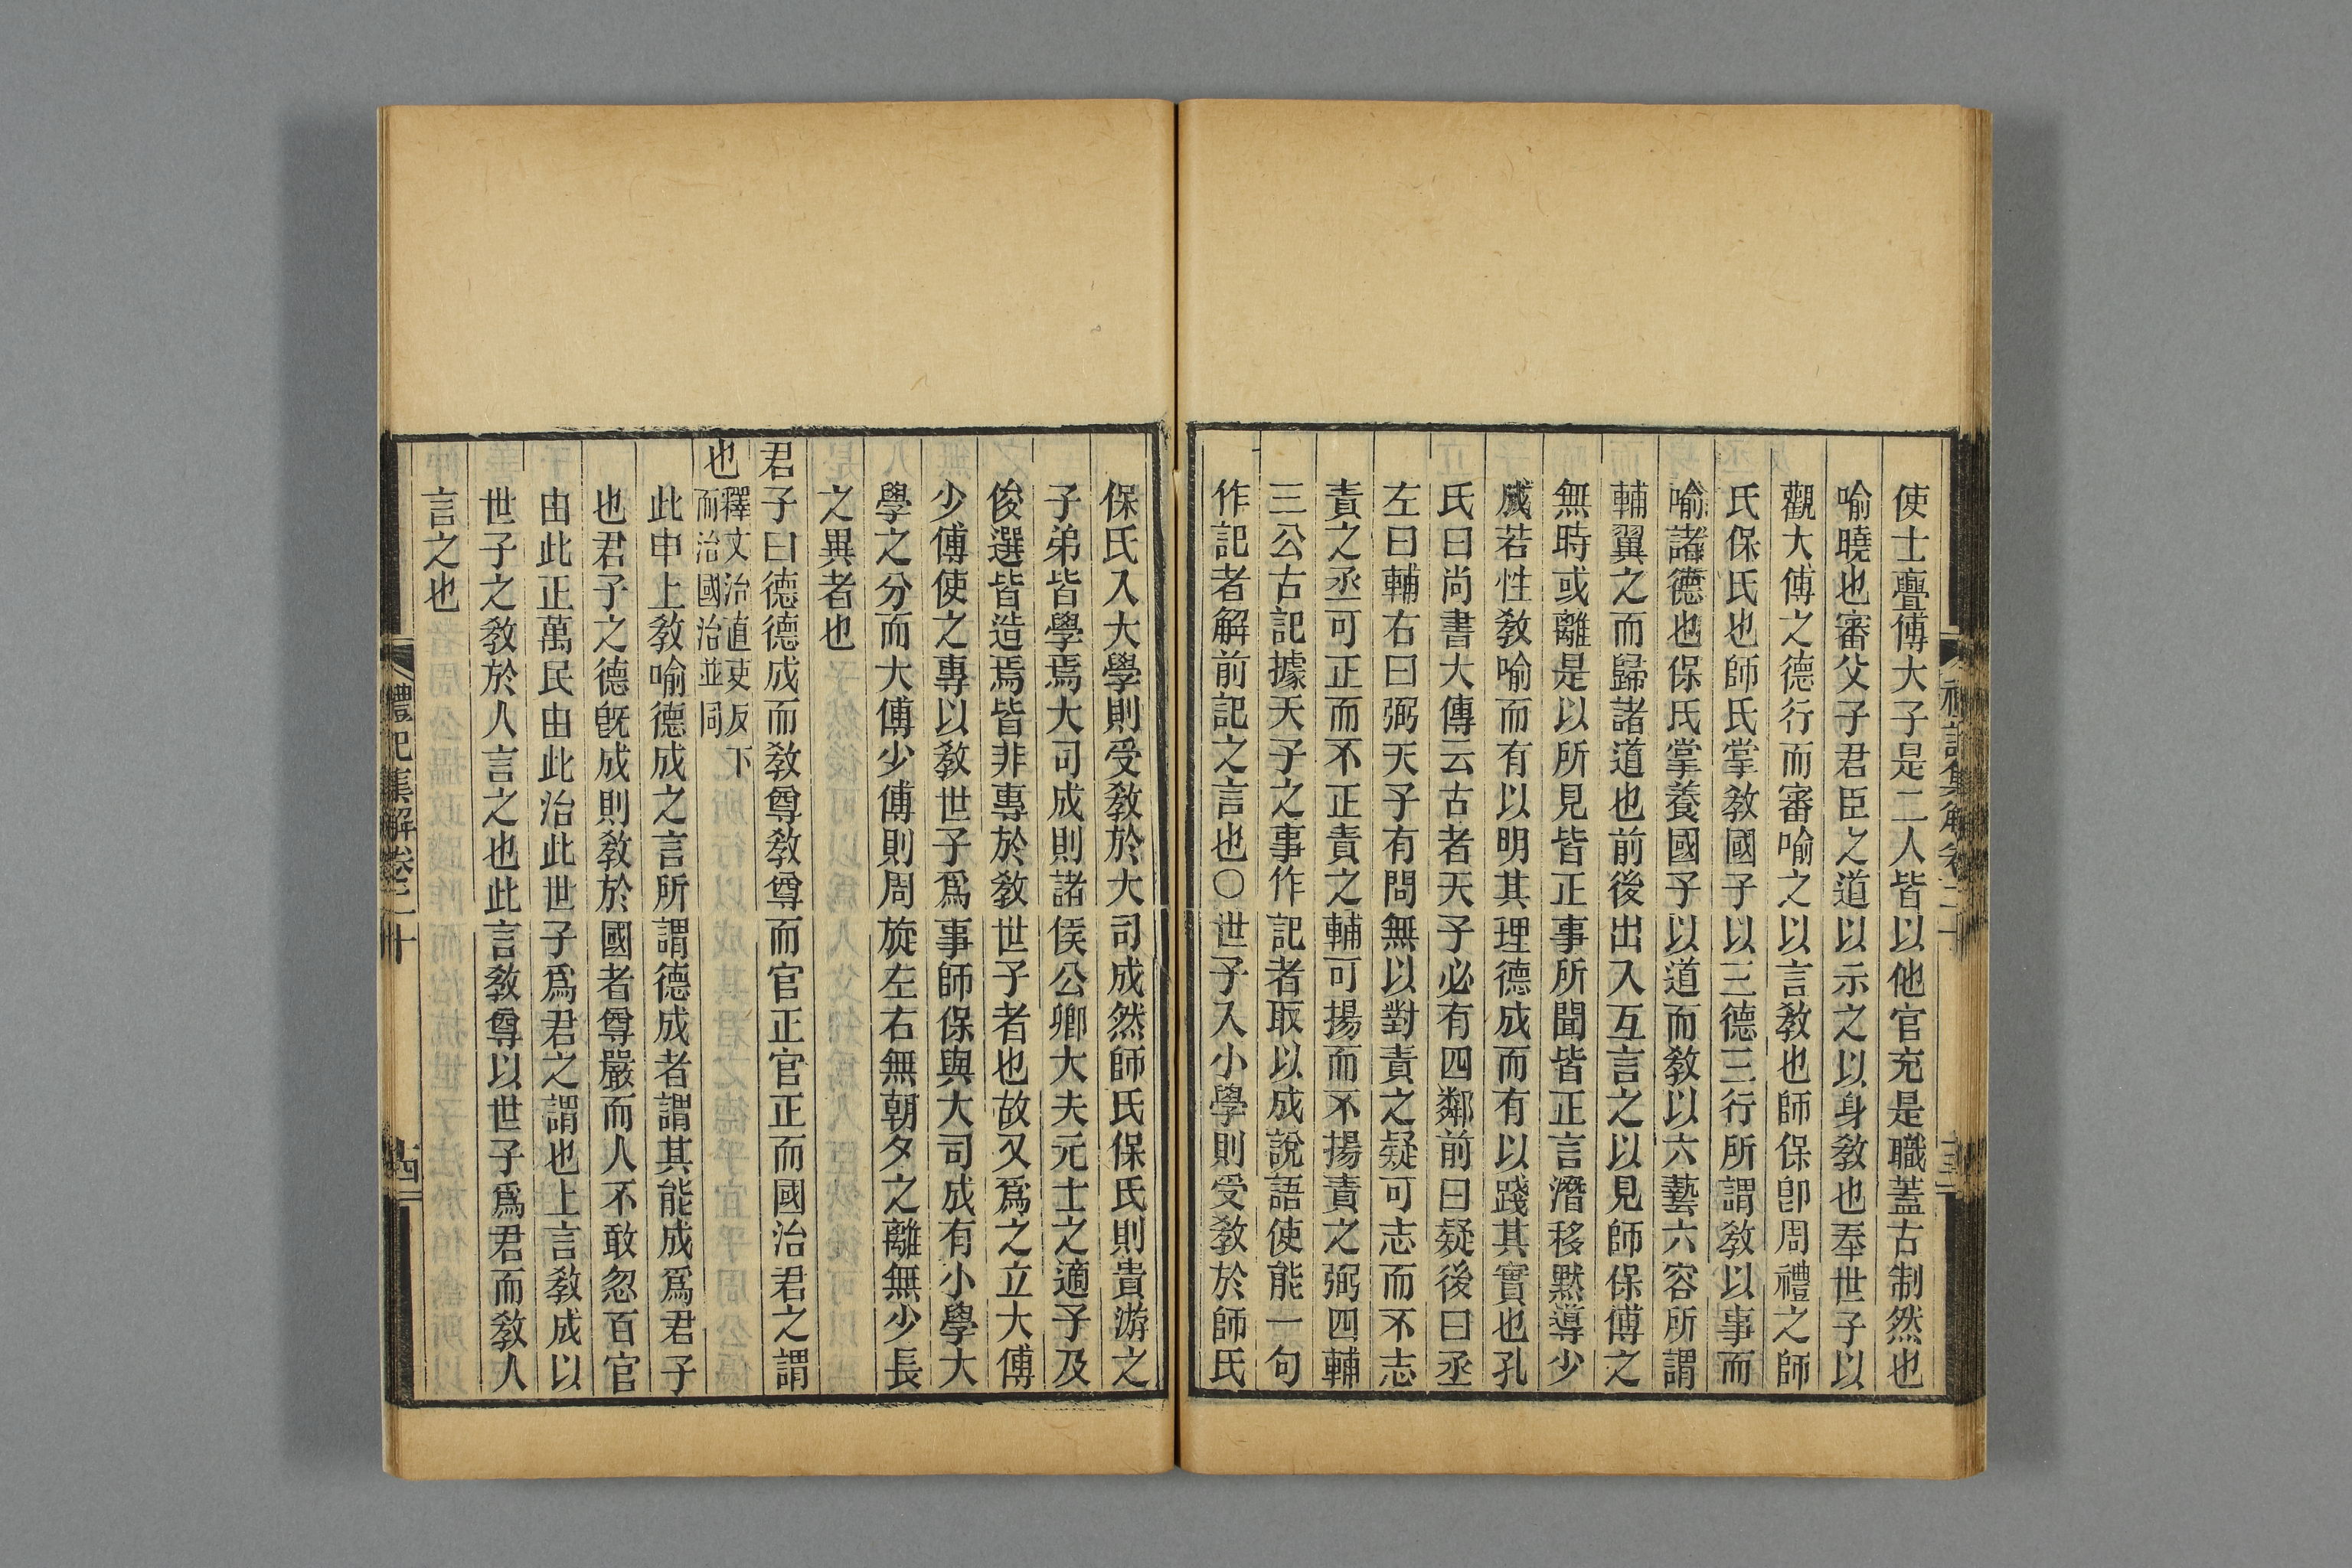 使士亹傅大子是二人皆以他官充是職蓋古制然也
喻曉也審父子君臣之道以示之以身敎也奉世子以
觀大傅之德行而審喻之以言敎也師保卽周禮之師
氏保氏也師氏掌敎國子以三德三行所謂敎以事而
喻諸德也保氏掌養國子以道而敎以六藝六容所謂
輔翼之而歸諸道也前後出入互言之以見師保傅之
無時或離是以所見皆正事所聞皆正言潛移黙導少
成若性敎喻而有以明其理德成而有以踐其實也孔
氏曰尚書大傳云古者天子必有四鄰前曰疑後曰丞
左曰輔右曰弼天子有問無以對責之疑可志而不志
責之丞可正而不正責之輔可揚而不揚責之弼四輔
三公古記據天子之事作記者取以成說語使能一句
作記者解前記之言也〇世子入小學則受敎於師氏
保氏入大學則受敎於大司成然師氏保氏則貴游之
子弟皆學焉大司成則諸侯公卿大夫元士之適子及
俊選皆造焉皆非專於敎世子者也故又爲之立大傅
少傅使之專以敎世子爲事師保與大司成有小學大
學之分而大傅少傅則周旋左右無朝夕之離無少長
之異者也
君子曰德德成而敎尊敎尊而官正官正而國治君之謂
也釋文治直吏反下
而治國治並同
此申上敎喻德成之言所謂德成者謂其能成爲君子
也君子之德旣成則敎於國者尊嚴而人不敢忽百官
由此正萬民由此治此世子爲君之謂也上言敎成以
世子之敎於人言之也此言敎尊以世子爲君而敎人
言之也
禮記集解卷二十
四